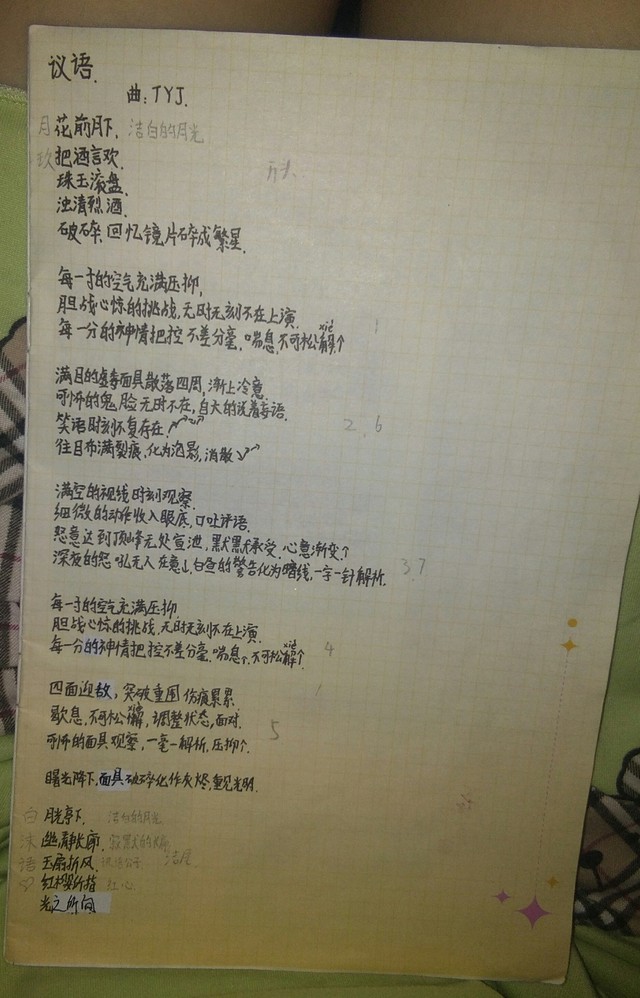 议语.
曲:TYJ.
月 花前月下. 洁白的月光
玖 把酒言欢.
珠玉滚盘.
浊清烈酒.
破碎回忆镜片碎成繁星.
每一寸的空气充满压抑,
胆战心惊的挑战,无时无刻不在上演.
xiè
每一分的神情把控不差分毫,喘息,不可松懈↑
1
满目的虚毒面具散落四周,渐上冷意.
可怖的鬼脸无时不在,自大的说着毒语.
笑语时刻不复存在.
2.6
往日布满裂痕,化为泡影,消散
满空的视线时刻观察.
细微的动作收入眼底,口吐评语.
怒意达到顶峰无处宣泄,默默承受.心急渐变个
深夜的怒吼无人在意,白昼的警告化为暗线,一字一针解析.
3.7
每一寸的空气充满压抑.
胆战心惊的挑战,无时无刻不在上演.
xiè
每一分的神情把控不差分毫.喘息个.不可松懈↑.
4
四面迎敌,突破重围 伤痕累累.
歇息,不可松懈,调整状态,面对.
5
可怖的面具观察,一毫一解析,压抑个.
曙光降下,面具破碎化作灰烬,重见光明.
白 月光亭下. 洁白的月光
沫 幽静长廊. 寂默的
语 玉扇折风.
♡ 红樱所指 红心
光之所向